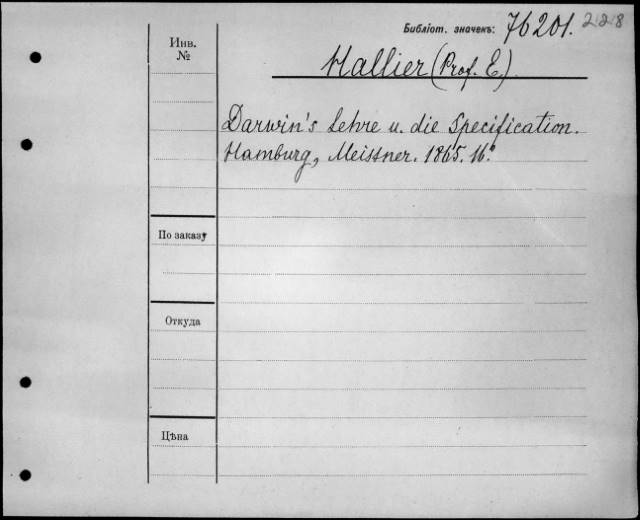 Библіот. значекъ: 76201. 228
Инв.
№
Hallier (Prof. E.)
Darwin's Lehre u. die Specification.
Hamburg, Meissner. 1865. 16°.
По заказу
Откуда
Цѣна